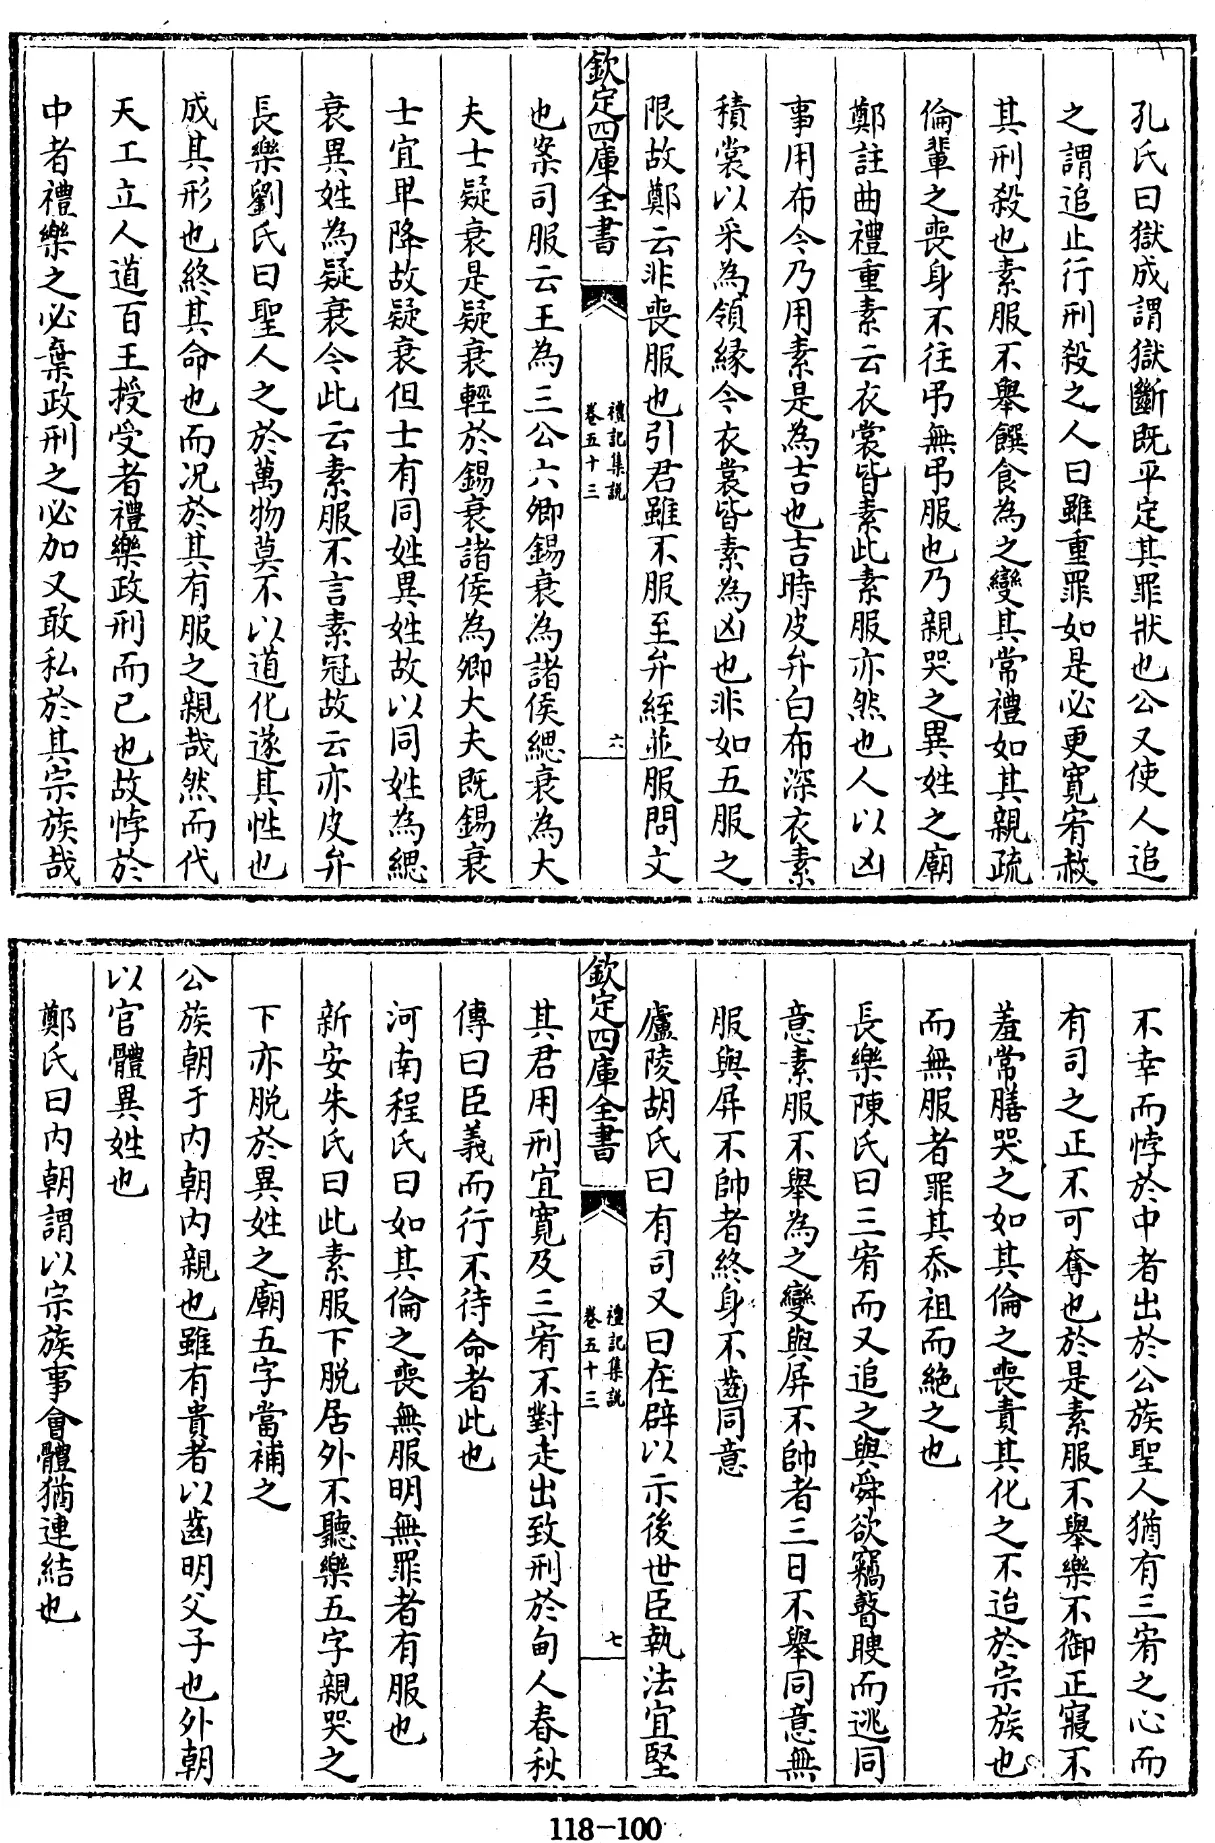 孔氏曰獄成謂獄斷既平定其罪狀也公又使人追
之謂追止行刑殺之人曰雖重罪如是必更寬宥赦
其刑殺也素服不舉饌食為之變其常禮如其親疏
倫輩之喪身不往弔無弔服也乃親哭之異姓之廟
鄭註曲禮重素云衣裳皆素此素服亦然也人以凶
事用布今乃用素是為吉也吉時皮弁白布深衣素
積裳以采為領緣今衣裳皆素為凶也非如五服之
限故鄭云非喪服也引君雖不服至弁絰並服問文
欽定四庫全書
禮記集說
卷五十三
六
也案司服云王為三公六卿錫衰為諸侯緦衰為大
夫士疑衰是疑衰輕於錫衰諸侯為卿大夫既錫衰
士宜卑降故疑衰但士有同姓異姓故以同姓為緦
衰異姓為疑衰今此云素服不言素冠故云亦皮弁
長樂劉氏曰聖人之於萬物莫不以道化遂其性也
成其形也終其命也而况於其有服之親哉然而代
天工立人道百王授受者禮樂政刑而已也故悖於
中者禮樂之必棄政刑之必加又敢私於其宗族哉
不幸而悖於中者出於公族聖人猶有三宥之心而
有司之正不可奪也於是素服不舉樂不御正寢不
羞常膳哭之如其倫之喪責其化之不迨於宗族也
而無服者罪其忝祖而絶之也
長樂陳氏曰三宥而又追之與舜欲竊瞽瞍而逃同
意素服不舉為之變與屏不帥者三日不舉同意無
服與屏不帥者終身不齒同意
廬陵胡氏曰有司又曰在辟以示後世臣執法宜堅
欽定四庫全書
禮記集說
卷五十三
七
其君用刑宜寬及三宥不對走出致刑於甸人春秋
傳曰臣義而行不待命者此也
河南程氏曰如其倫之喪無服明無罪者有服也
新安朱氏曰此素服下脱居外不聽樂五字親哭之
下亦脱於異姓之廟五字當補之
公族朝于内朝内親也雖有貴者以齒明父子也外朝
以官體異姓也
鄭氏曰内朝謂以宗族事會體猶連結也
118-100